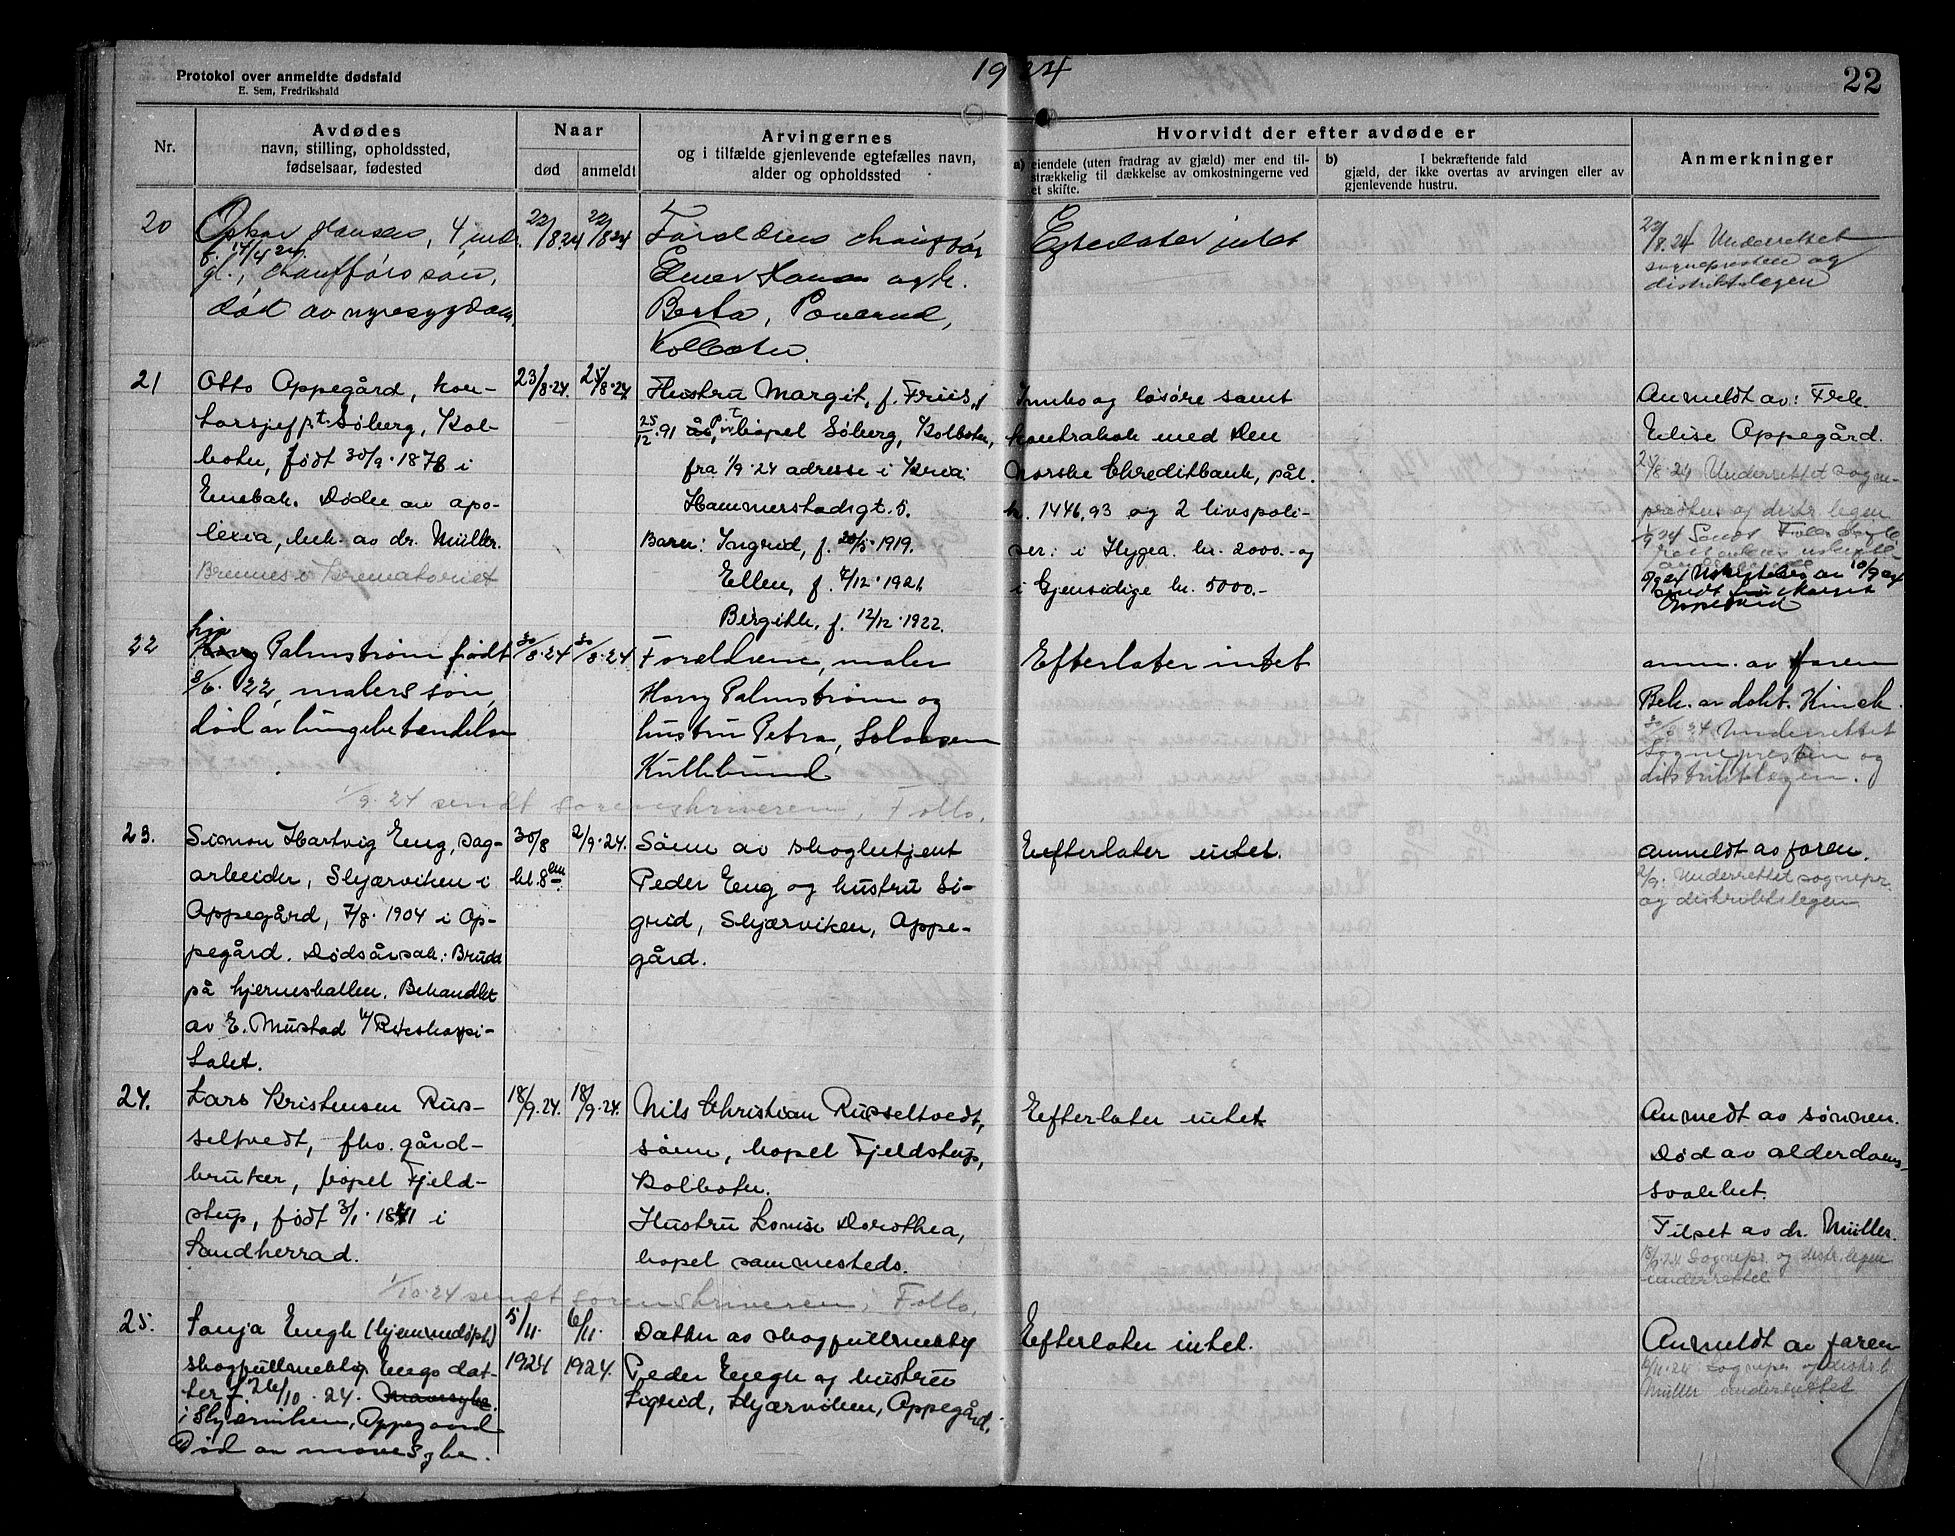 Protokol over anmeldte dødsfald
E. Sem, Fredrikshald
1924
22
Nr.
Avdødes
navn, stilling, opholdssted,
fødselsaar, fødested
Naar
død
anmeldt
Arvingernes
og i tilfælde gjenlevende egtefælles navn,
alder og opholdssted
Hvorvidt der efter avdøde er
a) eiendele (uten fradrag av gjæld) mer end til-
strækkelig til dækkelse av omkostningerne ved
et skifte.
b) I bekræftende fald
gjæld, der ikke overtas av arvingen eller av
gjenlevende hustru.
Anmerkninger
20
Hansen, 4 mdr.
f. 17/4 24
gl., chaufførs søn,
død av nyresygdom.
22/8 24
22/8 24
Forældrene chauffør
Hansen og h.
Berta,
Kolbotn.
intet
22/8.24 Underrettet
sognepresten og
distriktslegen
21
Otto Oppegård, kon-
torsjef p.t. Søberg, Kol-
botn, født 30/9.1876 i
Enebak. Døde av apo-
lexia, beh. av dr. Müller.
Brennes i Krematoriet
23/8.24.
25/8.24
Hustru Margit, f. Friis, f
25/12.91 bopel Søberg, Kolbotn,
fra 1/9.24 adresse i Kr.ia:
Hammerstadsgt. 5.
Barn: Ingrid, f. 20/5.1919.
Ellen, f. 7/12.1921,
Bergith, f. 12/12.1922.
Innbo og løsøre samt
kontrabok med Den
norske Creditbank, pål.
kr. 1446,93 og 2 livspoli-
ser: i Hygea kr. 2000.- og
i Gjensidige kr. 5000.-
Anmeldt av: Frk.
Elise Oppegård.
Underrettet sogne-
presten og distr. legen
Oppegård
22
Harry Palmstrøm født
3/6. 22, malers søn,
død av lungebetændelse
30/8.24
30/8.24
Foreldrene, maler
Harry Palmstrøm og
hustru Petra, Solaasen
Kullebund
Efterlater intet
anm. av faren
Beh. av dokt. Kinck.
30/8 24 Underrettet
Sognepresten og
distriktslegen.
1/9.24 sendt sorenskriveren i Follo.
23.
Simon Hartvig Eng, sag-
arbeider, Skjærviken i
Oppegård, 7/8. 1904 i Op-
pegård. Dødsårsak: Brudd
på hjerneskallen. Behandlet
av E. Mustad v/ Rikshospi-
talet.
30/8
kl. 8 em.
2/9.24.
Sønn av skogbetjent
Peder Eng og hustru Si-
grid, Skjærviken, Oppe-
gård.
Efterlater intet.
anmeldt av faren.
2/9. Underrettet sognepr.
og distriktslegen
24.
Lars Kristensen Rus-
seltvedt, fhv. gård-
bruker, bopel Fjeld-
stup, født 3/1.1841 i
Sandherrad.
18/9.24.
18/9.24.
Nils Christian Russeltvedt,
sønn, bopel Fjeldstup,
Kolbotn.
Hustru Lovise Dorothea,
bopel sammesteds.
Efterlater intet
Anmedt av sønnen.
Død av alderdoms-
svakhet.
Tilset av dr. Müller.
18/9 24 Sognepr. og distr. legen
underrettet
1/10.24 sendt sorenskriveren i Follo.
25.
Sonja Engh (hjemmedøpt)
skogfullmektig Engs dat-
ter f. 26/10.24.
i Skjærviken, Oppegaard
Død av mavesyke.
5/11.
1924
6/11.
1924.
Datter av skogfullmektig
Peder Engh og hustru
Sigrid, Skjærviken, Oppegård.
Efterlater intet.
Anmeldt av faren
6/11.24 Sognepr. og distr. l.
Müller underrettet